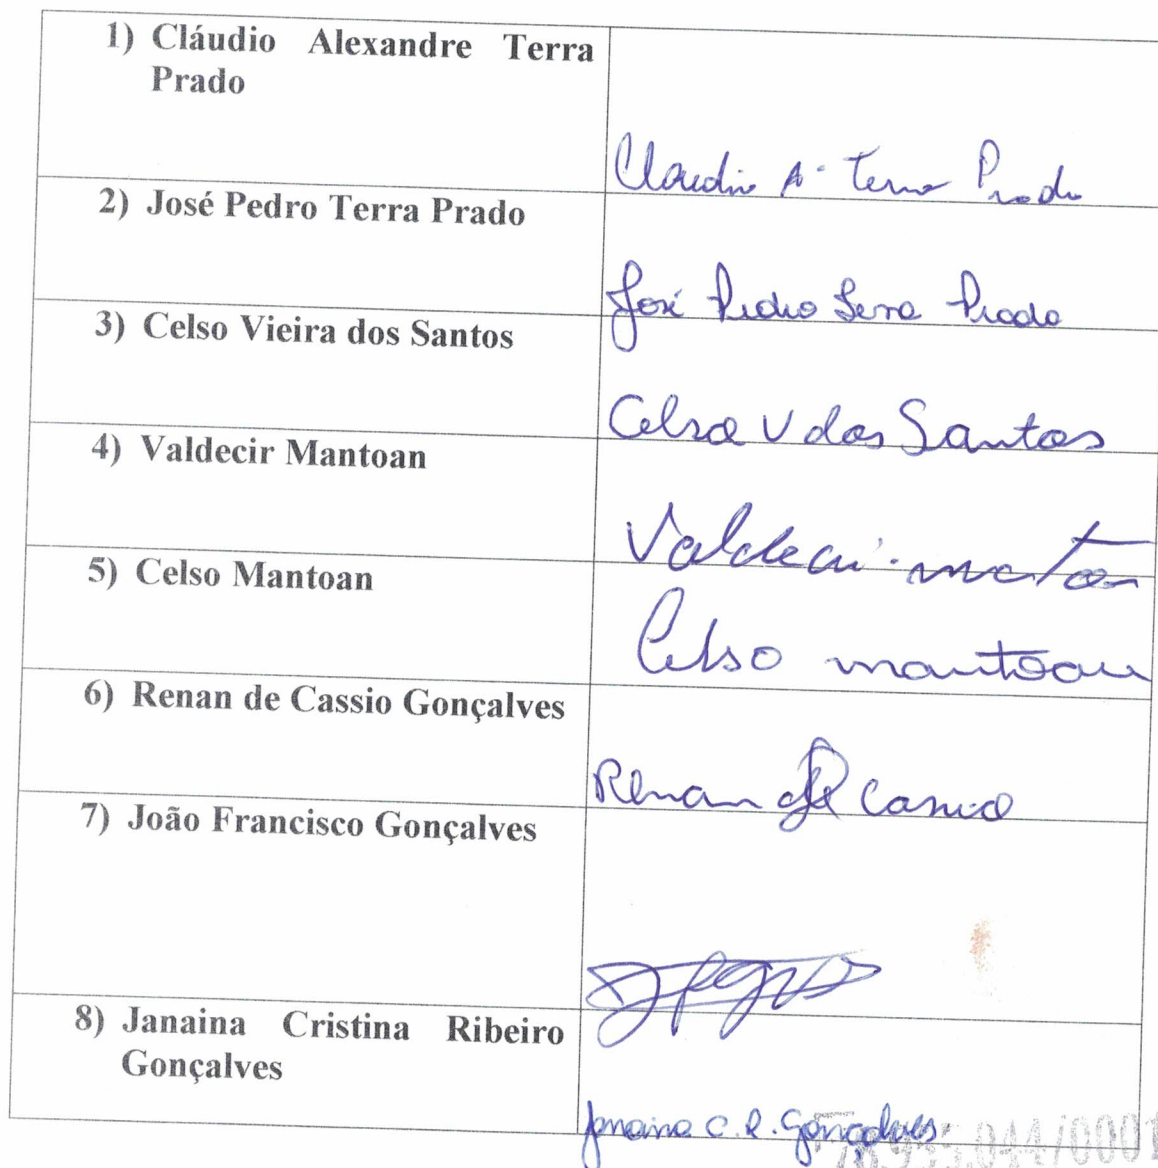 1) Cláudio Alexandre Terra
Prado
Claudio A. Terra Prado
2) José Pedro Terra Prado
José Pedro Terra Prado
3) Celso Vieira dos Santos
Celso V dos Santos
4) Valdecir Mantoan
Valdecir
5) Celso Mantoan
Celso mantoan
6) Renan de Cassio Gonçalves
Renan de Cassio
7) João Francisco Gonçalves
8) Janaina Cristina Ribeiro
Gonçalves
Janaina C. R. Gonçalves